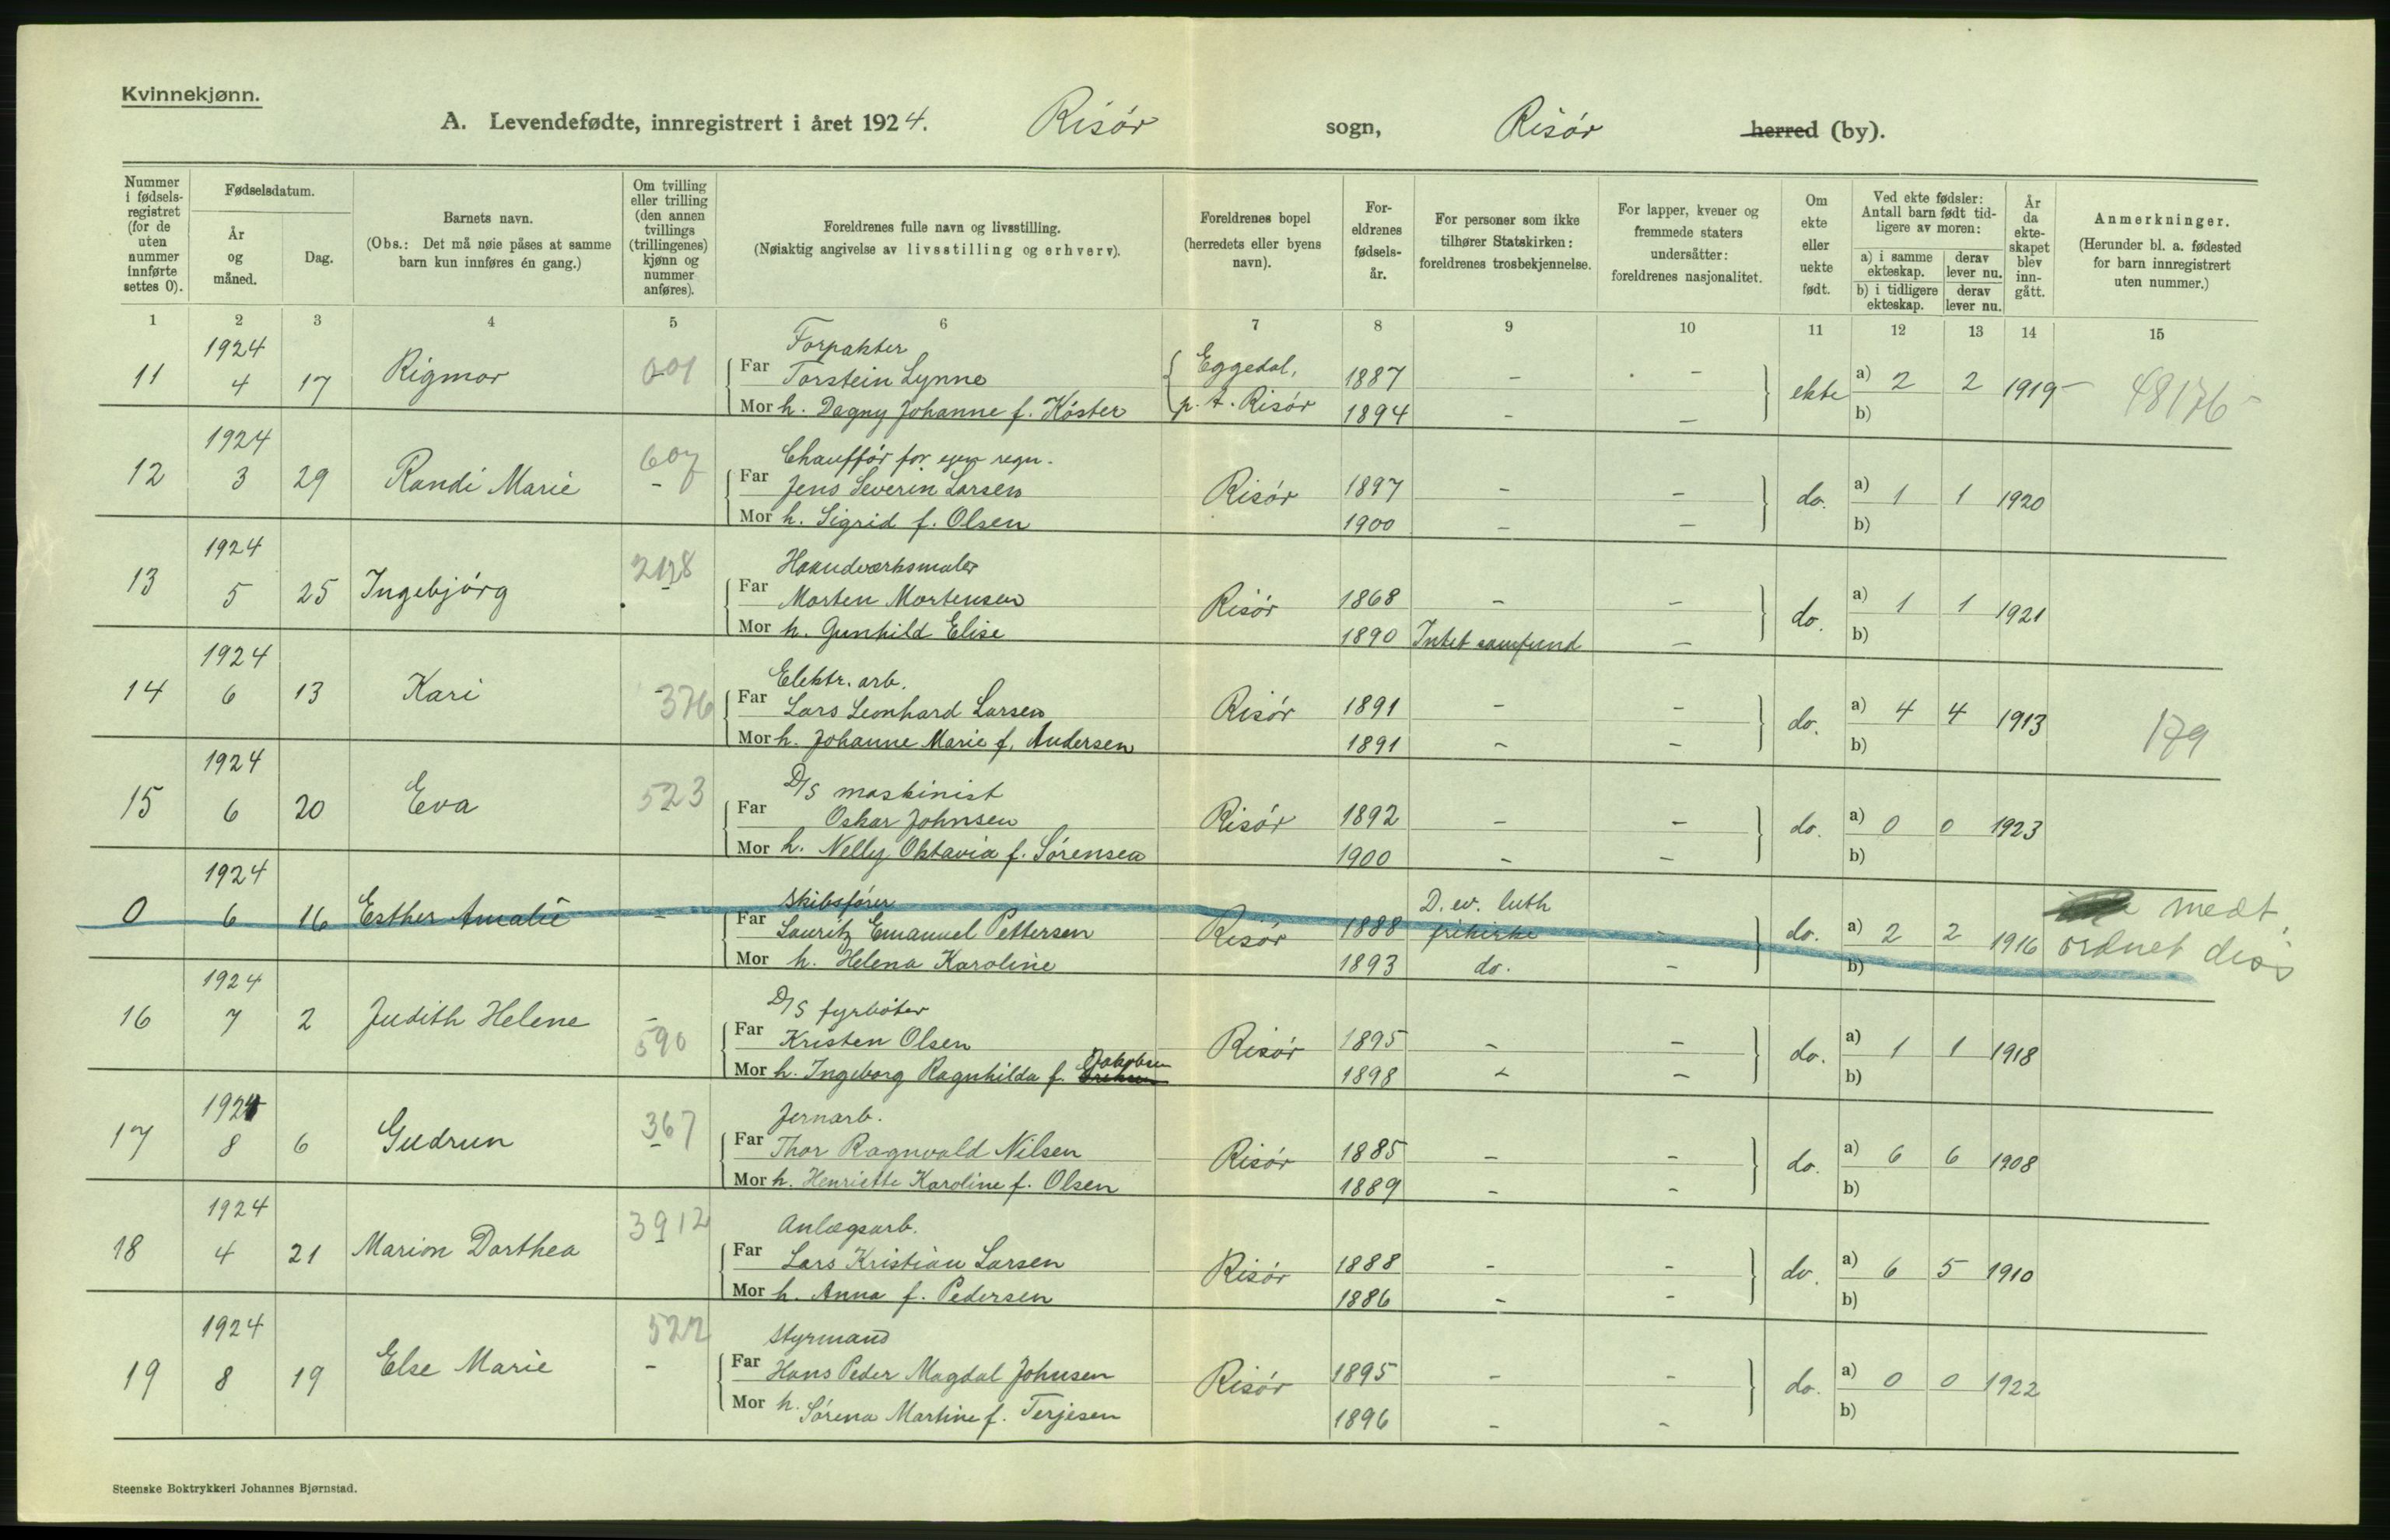 Kvinnekjønn.
A. Levendefødte, innregistrert i året 1924. Risør sogn, Risør herred (by).
Nummer i fødsels-registret (for de uten nummer innførte settes 0).
Fødselsdatum.
År og måned.
Dag.
Barnets navn.
(Obs.: Det må nøie påses at samme barn kun innføres én gang.)
Om tvilling eller trilling (den annen tvillings (trillingenes) kjønn og nummer anføres).
Foreldrenes fulle navn og livsstilling.
(Nøiaktig angivelse av livsstilling og erhverv).
Foreldrenes bopel (herredets eller byens navn).
For-eldrenes fødsels-år.
For personer som ikke tilhører Statskirken: foreldrenes trosbekjennelse.
For lapper, kvener og fremmede staters undersåtter: foreldrenes nasjonalitet.
Om ekte eller uekte født.
Ved ekte fødsler: Antall barn født tid-ligere av moren:
a) i samme ekteskap.
derav lever nu.
b) i tidligere ekteskap.
derav lever nu.
År da ekte-skapet blev inn-gått.
Anmerkninger.
(Herunder bl. a. fødested for barn innregistrert uten nummer.)
1 2 3 4 5 6 7 8 9 10 11 12 13 14 15
1924 Forpakter
11 4 17 Rigmor 601 Far Torstein Lynne Eggedal, 1887 - - ekte a) 2 2 1919 - 48176 -
Mor h. Dagny Johanne f. Köster p. t. Risör 1894 - - b)
1924 Chaufför for egen regn.
12 3 29 Randi Marie 607 - Far Jens Severin Larsen Risör 1897 - - do. a) 1 1 1920
Mor h. Sigrid f. Olsen 1900 - - b)
1924 Haandværksmaler
13 5 25 Ingebjörg 2128 - Far Morten Mortensen Risör 1868 - - do. a) 1 1 1921
Mor h. Gunhild Elise 1890 Intet samfund - b)
1924 Elektr. arb.
14 6 13 Kari - 376 Far Lars Leonhard Larsen Risör 1891 - - do. a) 4 4 1913 179
Mor h. Johanne Marie f. Andersen 1891 - - b)
1924 D/S maskinist
15 6 20 Eva 523 Far Oskar Johnsen Risör 1892 - - do. a) 0 0 1923
Mor h. Nelly Oktavia f. Sörensen 1900 - - b)
1924 Skibsförer D. ev. luth medt.
0 6 16 Esther Amalie - Far Lauritz Emanuel Pettersen Risör 1888 frikirke - do. a) 2 2 1916 ordnet diss
Mor h. Helena Karoline 1893 do. - b)
1924 D/S fyrböter
16 7 2 Judith Helene - 590 Far Kristen Olsen Risör 1895 - - do. a) 1 1 1918
Mor h. Ingeborg Ragnhilda f. Jakobsen 1898 - - b)
1924 Jernarb.
17 8 6 Gudrun 367 - Far Thor Ragnvald Nilsen Risör 1885 - - do. a) 6 6 1908
Mor h. Henriette Karoline f. Olsen 1889 - - b)
1924 Anlægsarb.
18 4 21 Marion Dorthea 3912 Far Lars Kristian Larsen Risör 1888 - - do. a) 6 5 1910
Mor h. Anna f. Pedersen 1886 - - b)
1924 Styrmand
19 8 19 Else Marie 522 - Far Hans Peder Magdal Johnsen Risör 1895 - - do. a) 0 0 1922
Mor h. Sörena Martine f. Terjesen 1896 - - b)
Steenske Boktrykkeri Johannes Bjørnstad.